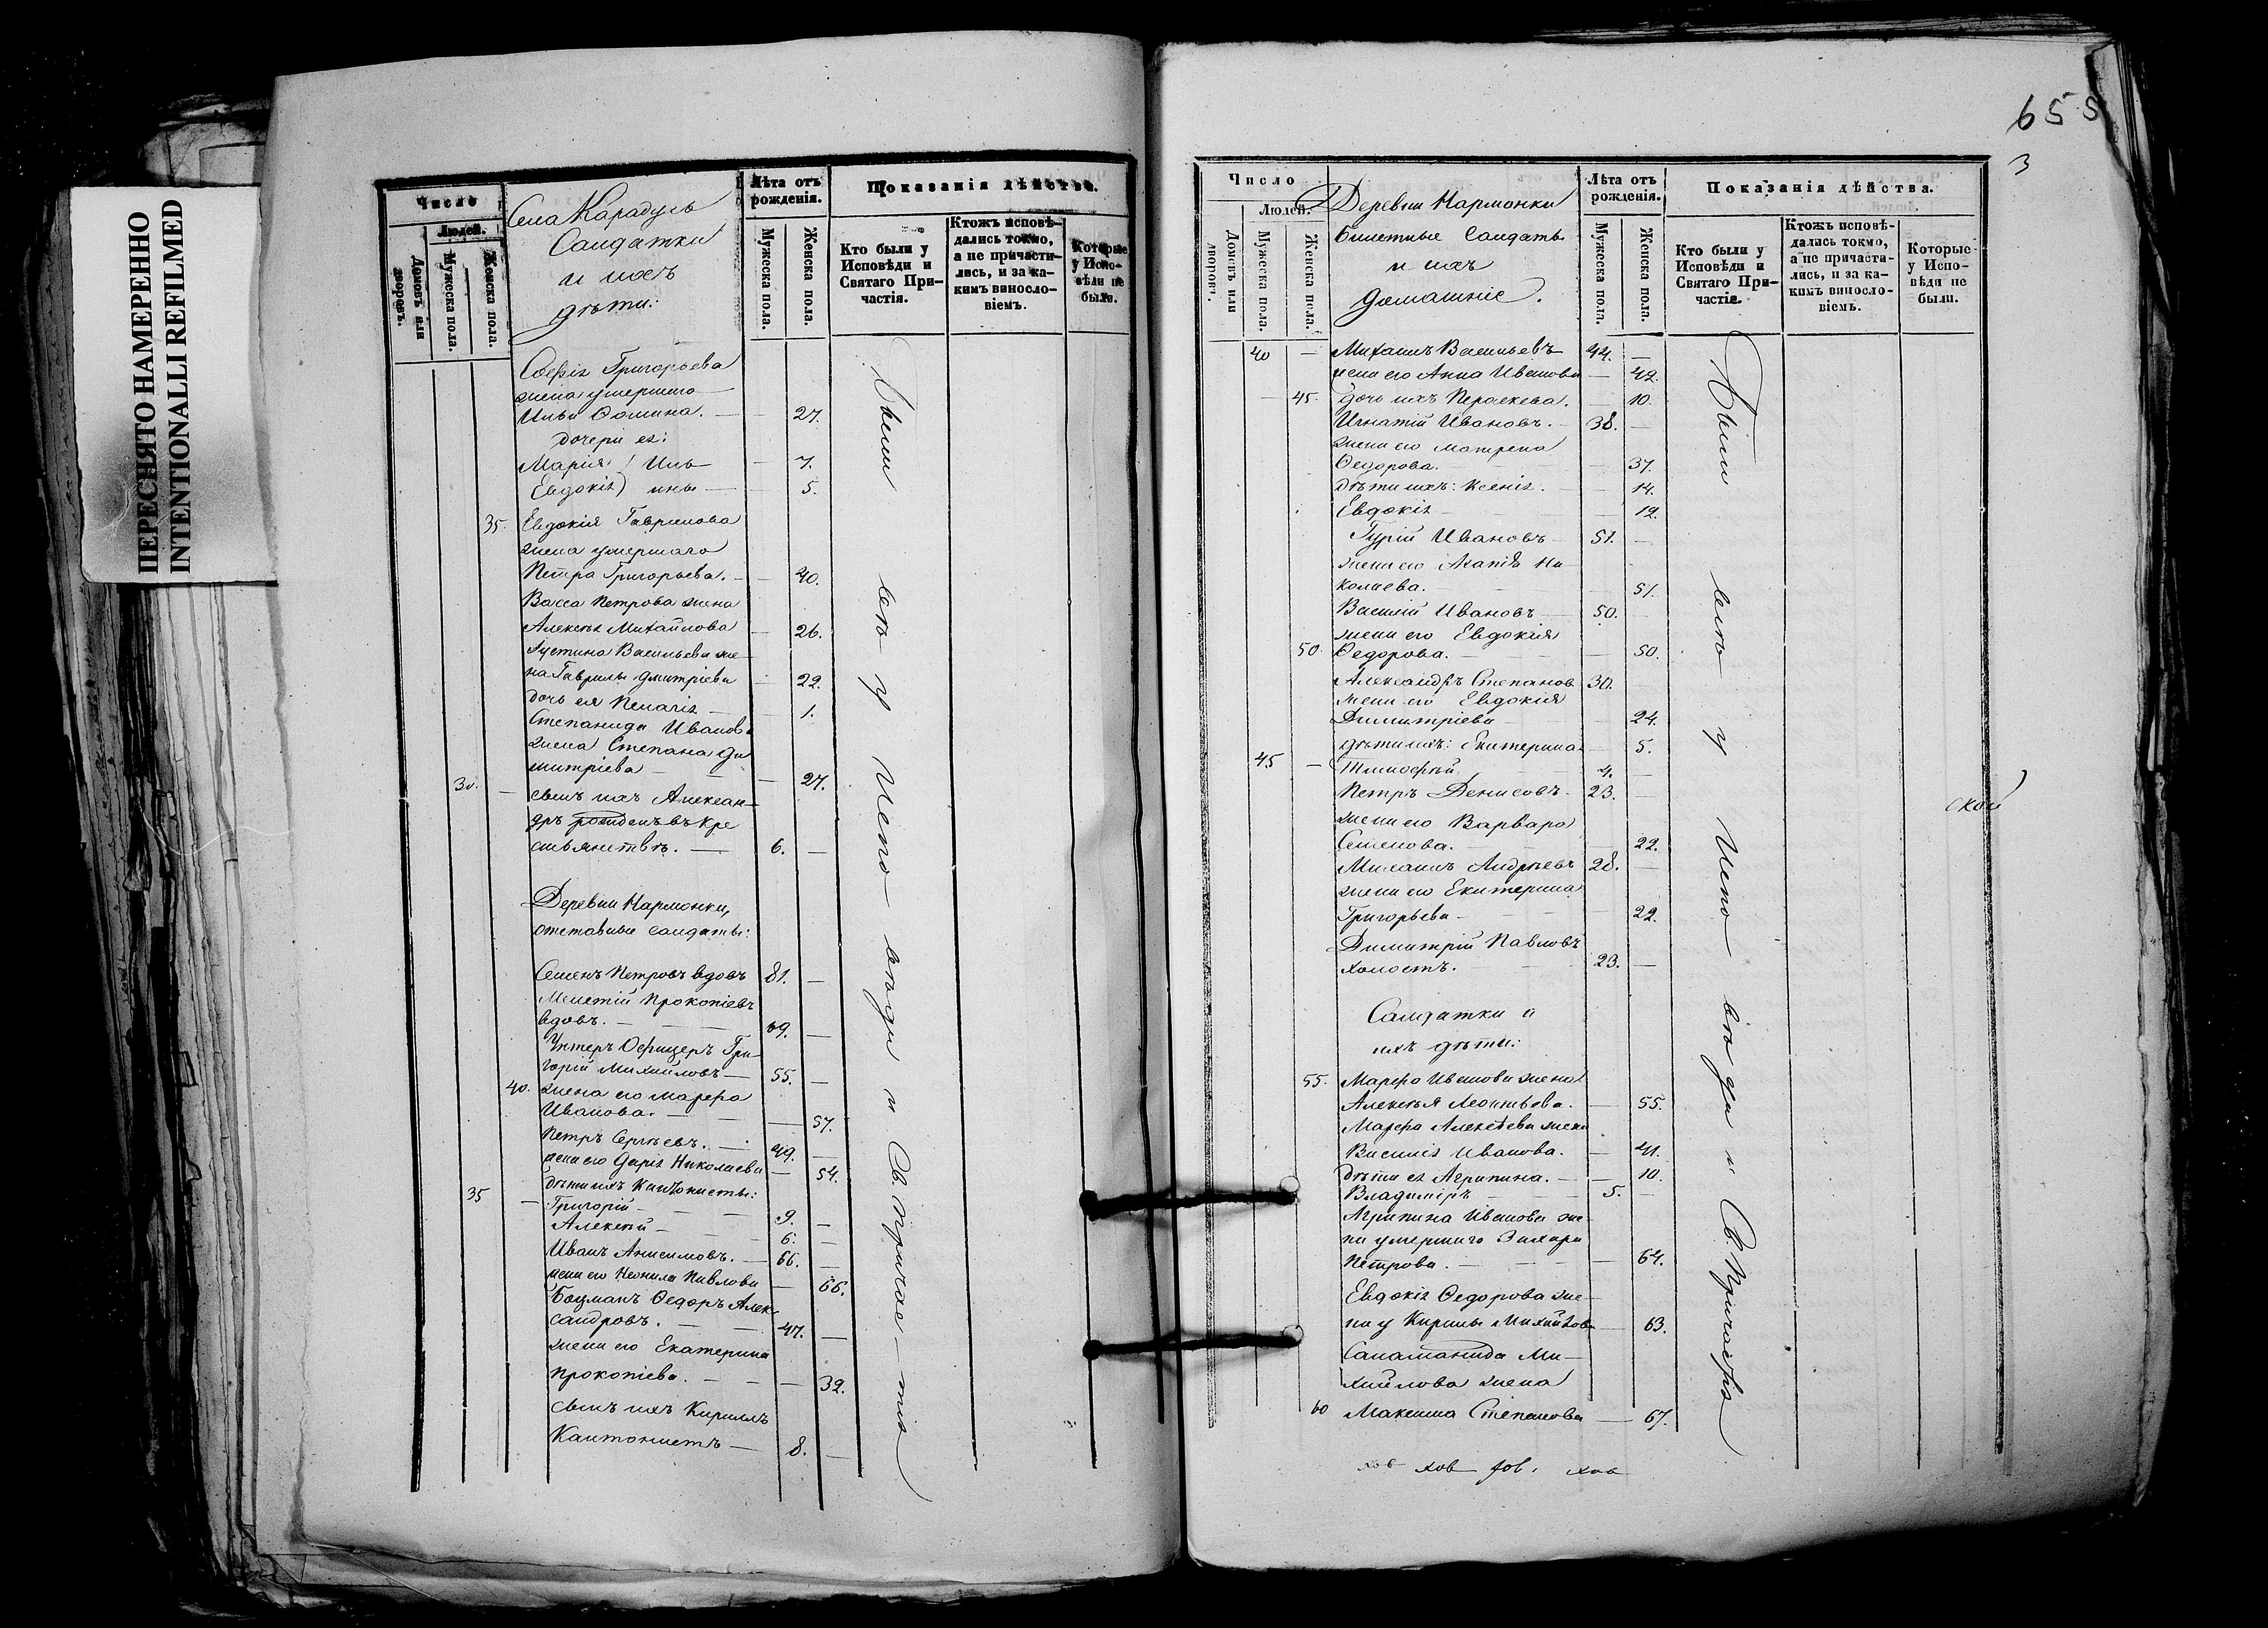 ПЕРЕСНЯТО НАМЕРЕННО
INTENTIONALLI REFILMED
Число
Людей.
Домовъ или дворовъ.
Мужеска пола.
Женска пола.
Села Карадуль
Салдатки
и ихъ
дѣти:
Лѣта отъ рожденія.
Мужеска пола.
Женска пола.
Показанія дѣйства.
Кто были у Исповѣди и Святаго Причастія.
Ктожъ исповѣдались токмо, а не причастились, и за какимъ винословіемъ.
Которые у Исповѣди не были.
Софія Григорьева
жена умершаго
Ильи Фомина. — 27.
дочери ея:
Марія } Иль — 7.
Евдокія } ины — 5.
35. Евдокія Гаврилова
жена умершаго
Петра Григорьева. — 40.
Васса Петрова жена
Алексѣя Михайлова — 26.
Устина Васильева же
на Гаврилы Дмитріева — 22.
дочь ея Пелагія — 1.
Степанида Иванова
жена Степана Ди
митріева — 27.
30. — сынъ ихъ Алексан
дръ рожденъ въ кре
стьянствѣ. — 6. —
Деревни Нармонки,
отставные салдаты:
Семенъ Петровъ вдовъ 81. —
Мелетій Прокопіевъ
вдовъ. — 69. —
Унтеръ Офицеръ Гри
горій Михайловъ — 55. —
40. жена его Марфа
Иванова. — 57.
Петръ Сергѣевъ. — 49. —
жена его Дарія Николаева — 54.
дѣти ихъ Кантонисты:
35 — Григорій — 9. —
Алексѣй — 6. —
Иванъ Анисимовъ. — 66. —
жена его Неонила Павлова — 66.
Боцманъ Федоръ Алек
сандровъ. — 47. —
жена его Екатерина
Прокопіева. — 39.
сынъ ихъ Кириллъ
Кантонистъ — 8. —
Были всѣ у Испо-вѣди и Св. Причас-тія
655
3
Число
Людей.
Домовъ или дворовъ.
Мужеска пола.
Женска пола.
Деревни Нармонки
билетные Салдаты
и ихъ
домашніе.
Лѣта отъ рожденія.
Мужеска пола.
Женска пола.
Показанія дѣйства.
Кто были у Исповѣди и Святаго Причастія.
Ктожъ исповѣдались токмо, а не причастились, и за какимъ винословіемъ.
Которые у Исповѣди не были.
40 — Михаилъ Васильевъ 44. —
жена его Анна Иванова — 42.
— 45. дочь ихъ Пераскева. — 10.
Игнатій Ивановъ. — 38. —
жена его Матрена
Федорова. — 37.
дѣти ихъ: Ксенія. — 14.
Евдокія — 12.
Гурій Ивановъ — 51. —
жена его Агапія Ни
колаева. — 51.
Василій Ивановъ — 50. —
жена его Евдокія
50. Федорова. — 50.
Александръ Степанов 30. —
жена его Евдокія
Димитріева — 24.
дѣти ихъ: Екатерина — 5.
45 — Тимофей 4. —
Петръ Денисовъ. 23. —
жена его Варвара
Семенова. — 22.
Михаилъ Андреевъ 28. —
жена его Екатерина
Григорьева — 22.
Димитрій Павловъ
холостъ. — 23. —
Салдатки и
ихъ дѣти:
55. Марфа Иванова жена
Алексѣя Леонтьева. — 55.
Марфа Алексѣева жена
Василія Иванова. — 41.
дѣти ея Агрипина. — 10.
Владиміръ — 5. —
Агрипина Иванова же
на умершаго Захара
Петрова. — 64.
Евдокія Федорова же
на у Кирилы Михайлова — 63.
Саламанида Ми
хайлова жена
60 Максима Степанова — 67.
Были всѣ у Испо-вѣди и Св. Причастія
ской
хов хов хов